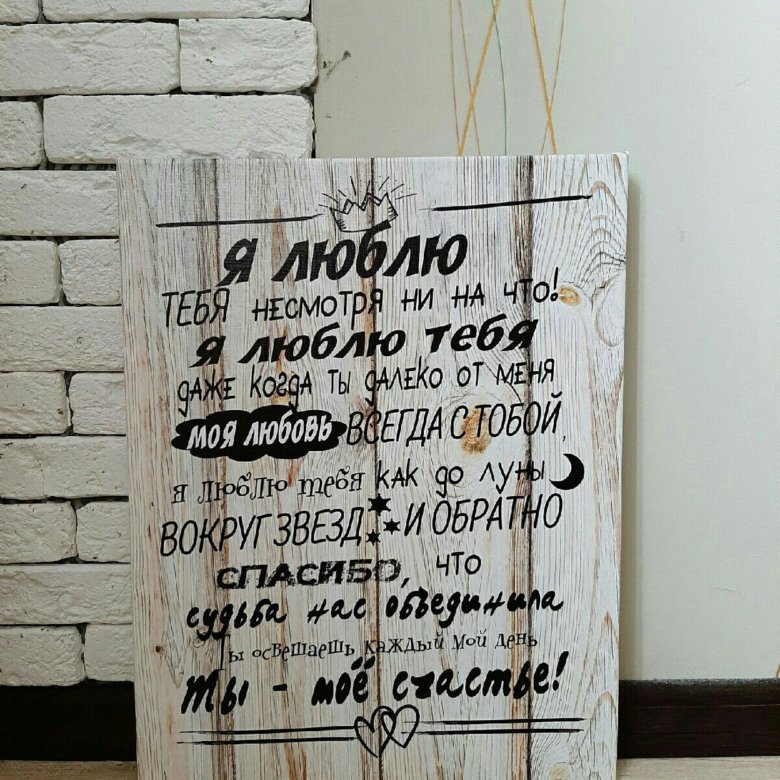 Я ЛЮБЛЮ
ТЕБЯ НЕСМОТРЯ НИ НА ЧТО!
Я ЛЮБЛЮ ТЕБЯ
ДАЖЕ КОГДА ТЫ ДАЛЕКО ОТ МЕНЯ
МОЯ ЛЮБОВЬ ВСЕГДА С ТОБОЙ,
Я ЛЮБЛЮ тебя КАК ДО ЛУНЫ
ВОКРУГ ЗВЕЗД И ОБРАТНО
СПАСИБО, ЧТО
судьба нас объединила
Ты освещаешь каждый мой день
Ты - моё счастье!